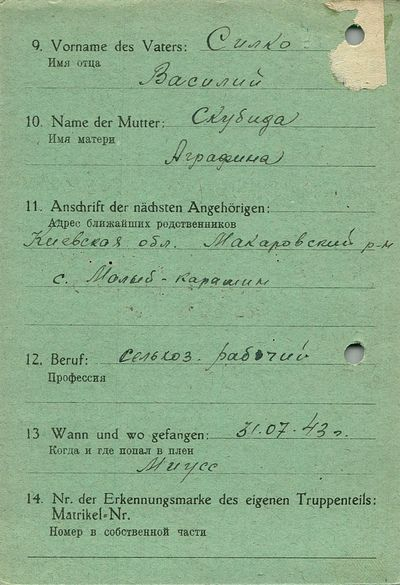 9. Vorname des Vaters: Силко
Имя отца
Василий
10. Name der Mutter: Скубида
Имя матери
Аграфина
11. Anschrift der nächsten Angehörigen:
Адрес ближайших редственников
Киевская обл. Макаровский р-н
с. Малый-карашин
12. Beruf: сельхоз. рабочий
Профессия
13 Wann und wo gefangen: 31.07.43 г.
Когда и где попал в плен
Миусс
14. Nr. der Erkennungsmarke des eigenen Truppenteils:
Matrikel-Nr.
Номер в собственной части